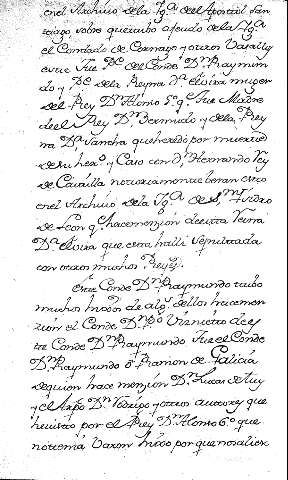 en el Archivo de la Yg.ª del Apostol San
tiago sobre que estubo a feudo de la Yg.ª
el Condado de y otros Vasallos
este fue P.e del Conde D.n Raymun
do y P.e de la Reyna D.ª Elvira muger
del Rey D.n Alonso 5.º q.e fue Madre
de el Rey D.n Bermudo y de la Rey
na D.ª Sancha que heredó por muerte
de su her.º y Caso con D.n Hernando Rey
de Castilla notoriamente veran esto
en el Archivo de la Yg.ª de S.n Ysidro
de Leon q.e hace menzion de esta Reina
D.ª Elvira que esta halli Sepultada
con otros muchos Reyes.
este Conde D.n Raymundo tubo
muchos hijos de alg.s dellos hacemen
zion el Conde D.n P.º Visnieto de es
te Conde D.n Raymundo fue el Conde
D.n Raymundo ó Ramon de Galicia
de quien hace menzion D.n Lucas de Tuy
y el Arzp.º D.n Rodrigo y otros autores que
he visto por el Rey D.n Alonso 6.º que
no tenia Varon hijo por que no saliese